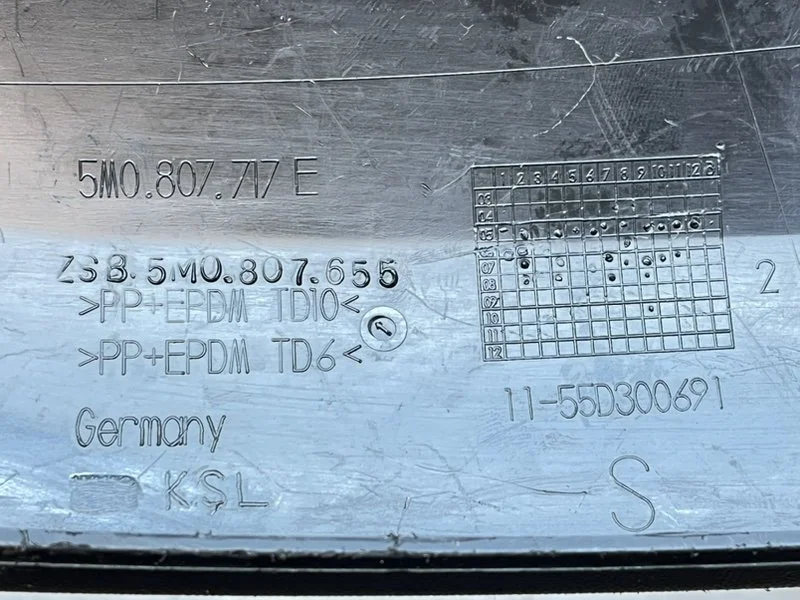 5M0.807.717 E
ZSB.5M0.807.655
>PP+EPDM TD10<
>PP+EPDM TD6<
Germany
KSL
1 2 3 4 5 6 7 8 9 10 11 12 13
03
04
05
06
07
08
09
10
11
12
2
11-55D300691
S